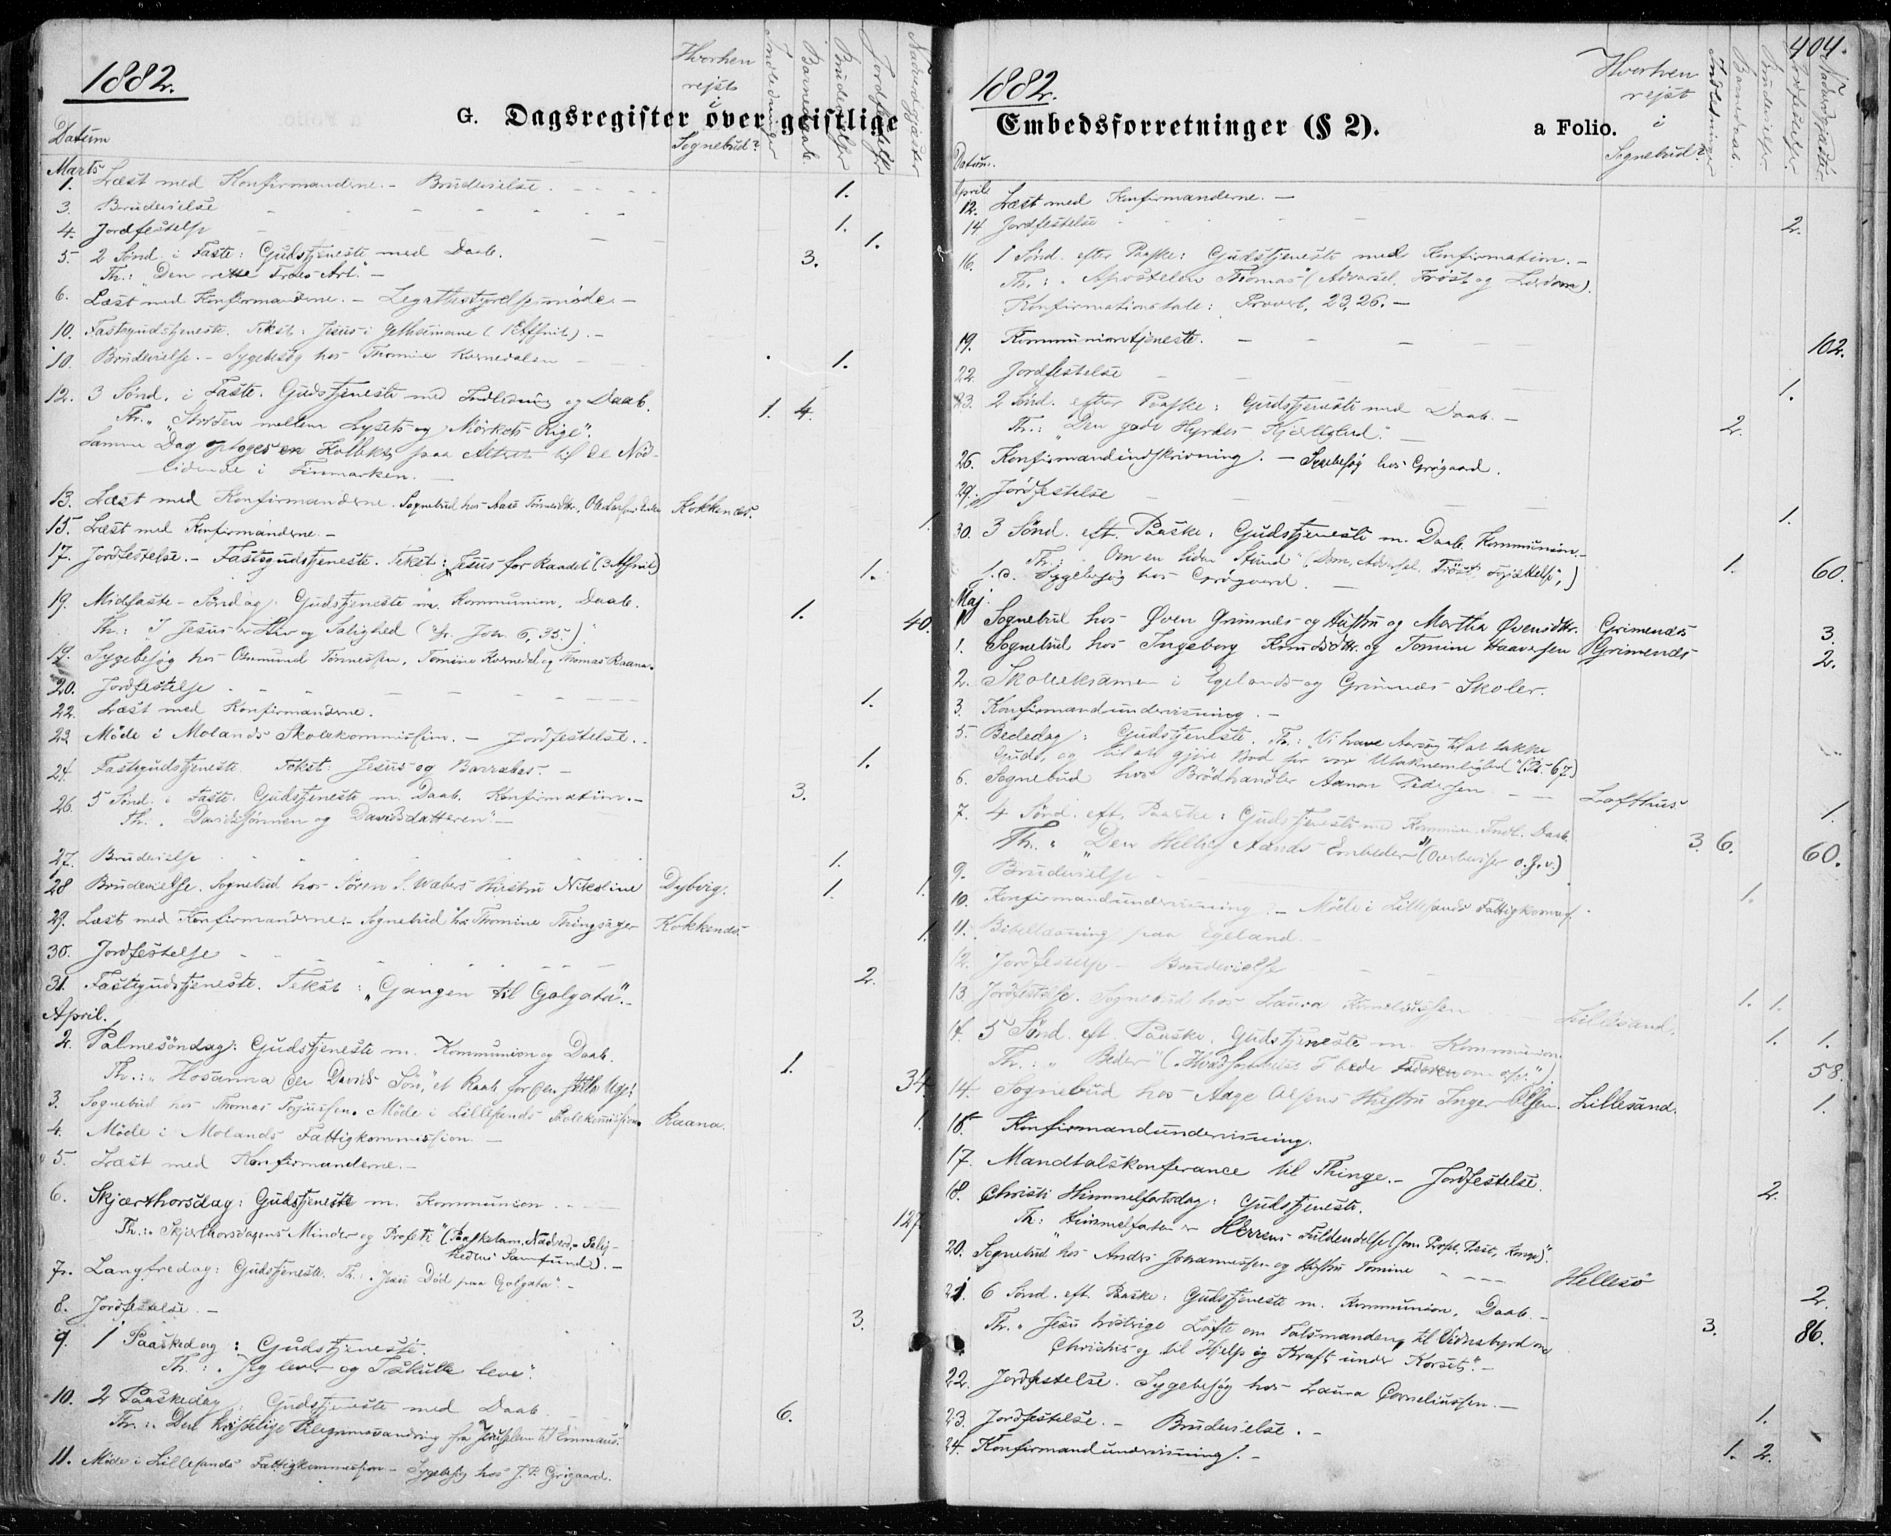 1882.
G. Dagsregister over geistlige
Datum
Hvorhen rejst i Sognebud?
Indledninger
Barnedaab
Brudevielser
Jordfæstelser
Nadverdgjæster
Marts
1. Læst med Konfirmanderne. – Brudevielse. 1.
3. Brudevielse 1.
4. Jordfestelse 1.
5. 2 Sønd. i Faste: Gudstjeneste med Daab. 3.
Th.: "Den rette Troes Art." –
6. Læst med Konfirmanderne. – Legatbestyrelsesmøde. –
10. Fastegudstjeneste. Tekst: Jesus i Gethsemane (1 Afsnit). –
10. Brudevielse. – Sygebesøg hos Thomine Kornedalen 1.
12. 3 Sønd. i Faste. Gudstjeneste med Indledning og Daab. 1. 4.
Th.: "Striden mellem Lysets og Mørkets Rige".
Samme Dag optoges en Kollekt paa Altret til de Nød-
lidende i Finmarken. –
13. Læst med Konfirmanderne. Sognebud hos Aase Tønnesdtr. Kokkenes. 1.
15. Læst med Konfirmanderne. –
17. Jordfestelse. – Fastegudstjeneste. Tekst: "Jesus for Raadet" (3 Afsnit) 1.
19. Midfaste-Søndag. Gudstjeneste m. Kommunion, Daab. 1. 40.
Th.: "I Jesus er Liv og Salighed (cfr. Joh. 6, 35.)."
19. Sygebesøg hos Osmund Tønnessen, Tomine Kornedal og Thomas Raana.
20. Jordfestelse 1.
22. Læst med Konfirmanderne.
22 Møde i Molands Skolekommission. – Jordfestelse. 1.
24. Fastegudstjeneste. Tekst: Jesus og Barrabas. –
26. 5 Sønd. i Faste. Gudstjeneste m. Daab. Konfirmation. – 3.
Th.: "Davidssønnen og Davidsdatteren" –
27. Brudevielse 1.
28 Brudevielse. Sognebud hos Søren S. Wæbers Hustru Nikoline Dybvig. 1. 1.
29. Læst med Konfirmanderne. – Sognebud hos Thomine Thingsager Kokkenes. 1.
30. Jordfestelse 2.
31. Fastegudstjeneste. Tekst: "Gangen til Golgata". –
April.
2. Palmesøndag: Gudstjeneste m. Kommunion og Daab. 1. 34.
Th.: "Hosanna den Davids Søn", et Raab for den Uge!
3. Sognebud hos Thomas Torjussen. Møde i Lillesands Skolekommission. Raana. 1.
4. Møde i Molands Fattigkommission. –
5. Læst med Konfirmanderne. –
6. Skjærthorsdag: Gudstjeneste m. Kommunion 127.
Th.: "Skjærthorsdagens Minder og Profeti" (Paaskelam, Nadverd, Salig-
hedens Samfund). –
7. Langfredag: Gudstjeneste. Th.: "Jesu Død paa Golgata". –
8. Jordfestelse. – 3.
9. 1 Paaskedag: Gudstjeneste.
Th.: "Jeg lever og I skulle leve".
10. 2 Paaskedag: Gudstjeneste med Daab. 6.
Th.: "Den kristelige Pilegrimsvandring fra Jerusalem til Emmaus".
11. Møde i Lillesands Fattigkommission – Sygebesøg hos J. P. Grøgaard.
1882.
404.
Embedsforretninger (§ 2).
a Folio.
Datum.
Hvorhen rejst i Sognebud?
Indledninger
Barnedaab.
Brudevielser
Jordfæstelser.
Nadverdgjæster
April
12. Læst med Konfirmanderne. –
14 Jordfestelse 2.
16. 1 Sønd. efter Paaske: Gudstjeneste med Konfirmation. –
Th.: "Apostelen Thomas" (Advarsel, Trøst og Lærdom).
Konfirmationstale: Proverb. 23,26. –
19. Kommuniontjeneste. 102.
22 Jordfestelse 1.
23. 2 Sønd. efter Paaske: Gudstjeneste med Daab. – 2.
Th.: "Den gode Hyrdes Kjærlighed." –
26. Konfirmandindskrivning. – Sygebesøg hos Grøgaard.
29. Jordfestelse 1.
30. 3 Sønd. eft. Paaske: Gudstjeneste m. Daab. Kommunion. – 1. 60.
Th.: "Om en liden Stund" (Dom, Advarsel, Trøst, )
s. d. Sygebesøg hos Grøgaard. –
Maj.
1 Sognebud hos Øven Grimnes og Hustru og Martha Øvensdtr. Grimenes 3.
1. Sognebud hos Ingeborg Knudsdtr. og Tomine Haaversen Grimenes 2.
2. Skoleeksamen i Egelands og Grimnæs Skoler.
3. Konfirmandundervisning. –
5. Bededag: Gudstjeneste. Th.: "Vi have Aarsag til at takke
Gud, og til at gjøre Bod for vor Utaknemlighed" (Ps. 67)
6. Sognebud hos Brødhandler Aanon Pedersen Lofthus 1.
7. 4 Sønd. eft. Paaske: Gudstjeneste med Kommun. Indl. Daab. 3. 6. 60.
Th.: "Den Hellig Aands Embeder" (Overbeviser o.s.v.)
9. Brudevielse 1.
10. Konfirmandundervisning. – Møde i Lillesands Fattigkomm.
11. Bibellæsning paa Egeland. –
12. Jordfestelse – Brudevielse 1. 1.
13. Jordfestelse. Sognebud hos Laura Korneliussen Lillesand. 1. 1.
14. 5 Sønd. eft. Paaske. Gudstjeneste m. Kommunion. 58.
Th.: "Beder" ("Hvadsomhelst I bede Faderen om osv.")
14. Sognebud hos Aage Olsens Hustru Inger Olsen. Lillesand. 1.
15. Konfirmandundervisning.
17. Mandtalskonferance til Thinge. – Jordfestelse. 2.
18. Christi Himmelfartsdag: Gudstjeneste.
Th.: "Himmelfarten er Herrens Fuldendelse (som Profet, Præst, Konge)".
20. Sognebud hos Anders Johannessen og Hustru Tomine Hellesø 2.
21. 6 Sønd. eft. Paaske: Gudstjeneste m. Kommunion, Daab. – 3. 86.
Th.: "Jesu trøstrige Løfte om Talsmanden, til Vidnesbyrd om
Christus og til Hjelp og Kraft under Korset." –
22. Jordfestelse. Sygebesøg hos Laura Corneliussen. – 1.
23. Jordfestelse. – Brudevielse. – 1. 2.
24. Konfirmandundervisning. –